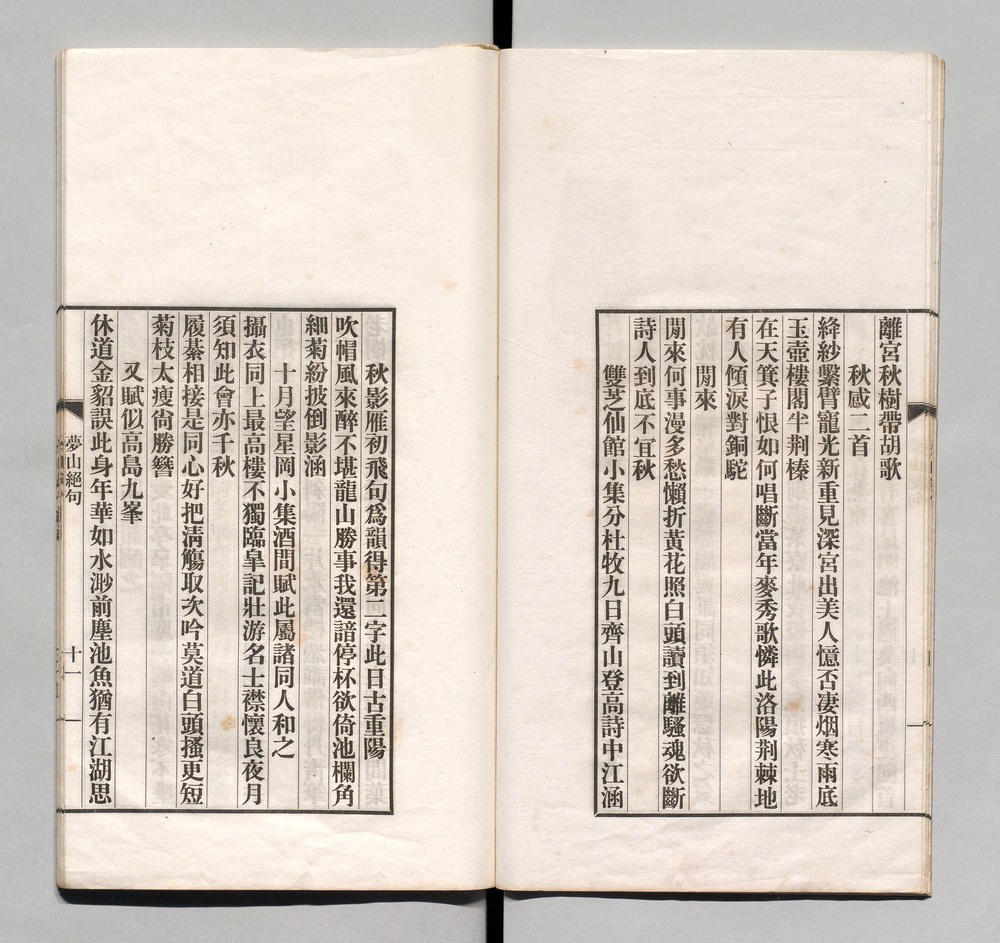 離宮秋樹帶胡歌
秋感二首
絳紗繫臂寵光新重見深宮出美人憶否凄烟寒雨底
玉壺樓閣半荆榛
在天箕子恨如何唱斷當年麥秀歌憐此洛陽荆棘地
有人傾淚對銅駝
閒來
閒來何事漫多愁懶折黃花照白頭讀到離騷魂欲斷
詩人到底不宜秋
雙芝仙館小集分杜牧九日齊山登高詩中江涵
秋影雁初飛句爲韻得第二字此日古重陽
吹帽風來醉不堪龍山勝事我還諳停杯欲倚池欄角
細菊紛披倒影涵
十月望星岡小集酒間賦此屬諸同人和之
攝衣同上最高樓不獨臨皐記壯游名士襟懷良夜月
須知此會亦千秋
履綦相接是同心好把淸觴取次吟莫道白頭搔更短
菊枝太瘦尙勝簪
又賦似高島九峯
休道金貂誤此身年華如水渺前塵池魚猶有江湖思
夢山絕句
十一